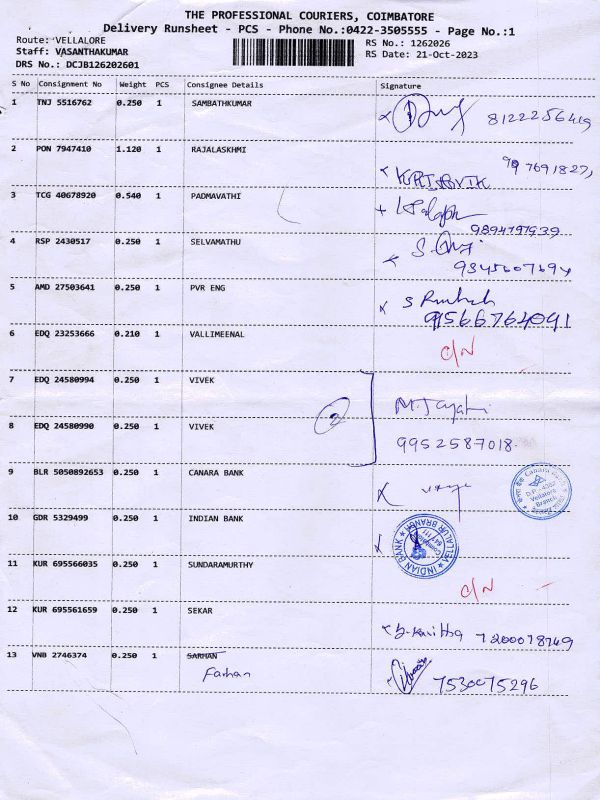 THE PROFESSIONAL COURIERS, COIMBATORE
Delivery Runsheet - PCS - Phone No.:0422-3505555 - Page No.:1
Route: VELLALORE
RS No.: 1262026
Staff: VASANTHAKUMAR
RS Date: 21-Oct-2023
DRS No.: DCJB126202601
S No Consignment No Weight PCS Consignee Details Signature
1 TNJ 5516762 0.250 1 SAMBATHKUMAR 8122256419
2 PON 7947410 1.120 1 RAJALASKHMI
3 TCG 40678920 0.540 1 PADMAVATHI
4 RSP 2430517 0.250 1 SELVAMATHU 9345607694
5 AMD 27503641 0.250 1 PVR ENG 9566764091
6 EDQ 23253666 0.210 1 VALLIMEENAL C/N
7 EDQ 24580994 0.250 1 VIVEK
2
8 EDQ 24580990 0.250 1 VIVEK 9952587018
9 BLR 5050892653 0.250 1 CANARA BANK
Canara Bank
Vellalore
Branch
10 GDR 5329499 0.250 1 INDIAN BANK
INDIAN BANK VELLALUR BRANCH
11 KUR 695566035 0.250 1 SUNDARAMURTHY C/N
12 KUR 695561659 0.250 1 SEKAR
13 VNB 2746374 0.250 1 SARHAN
Farhan 7530075296